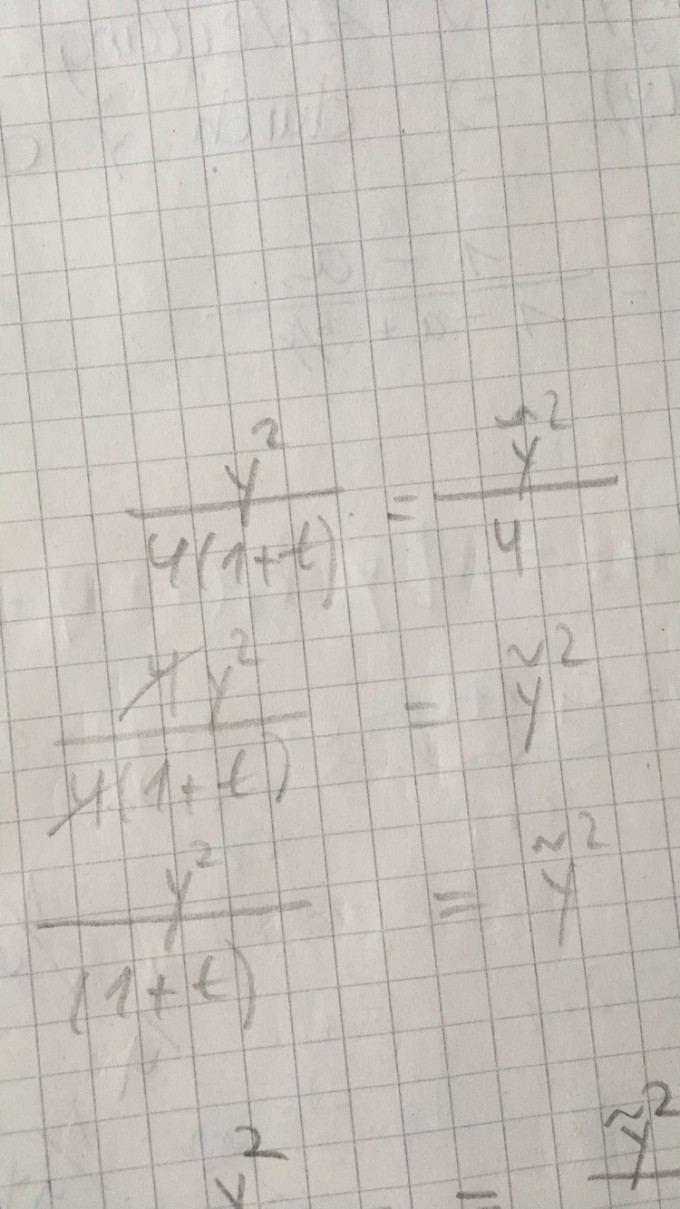 y²/4(1+t) = ỹ²/4
4y²/4(1+t) = ỹ²
y²/(1+t) = ỹ²
y² = ỹ²